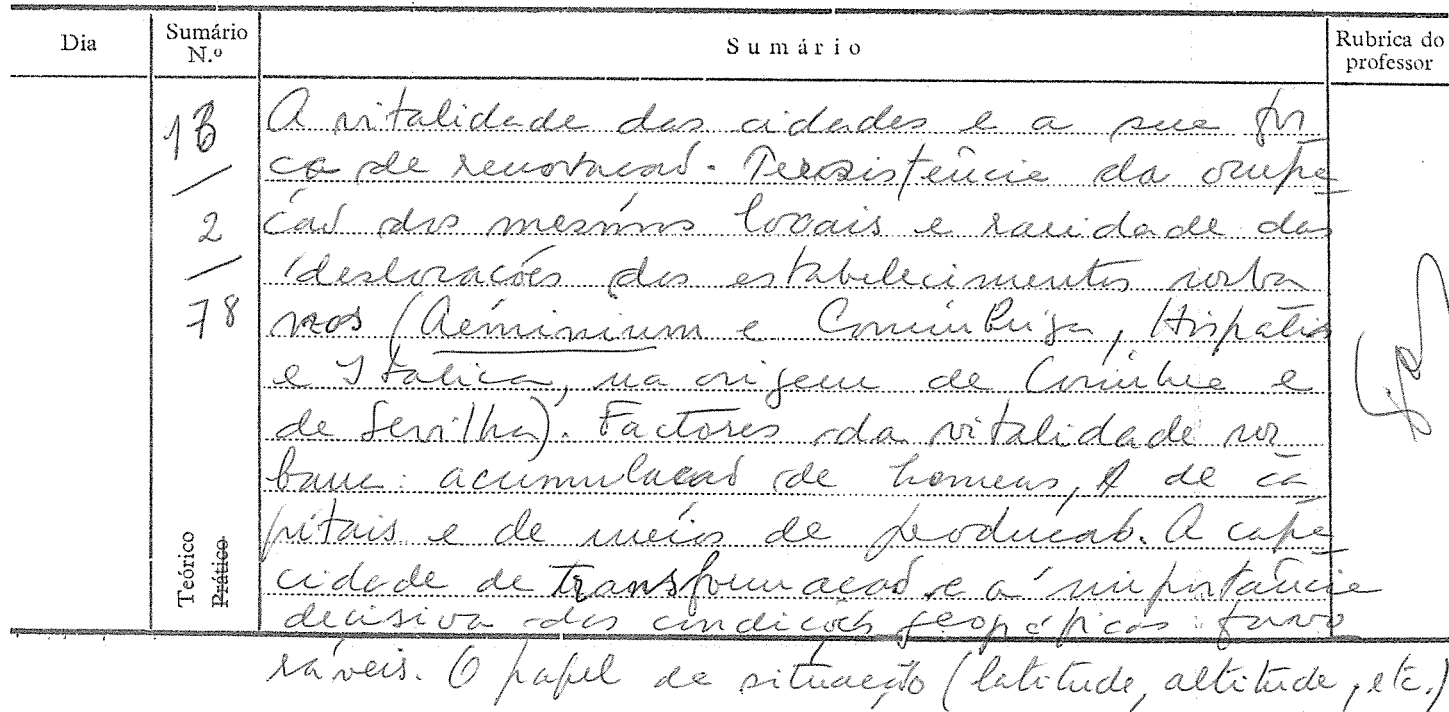 Dia
Sumário N.º
Sumário
Rubrica do professor
13/2/78
Teórico
Prático
A vitalidade das cidades e a sua for
ça de renovação. Persistência da ocupa
ção dos mesmos locais e raridade das
deslocações dos estabelecimentos urba
nos (Aeminium e Conimbriga, Hispalis
e Italica, na origem de Coimbra e
de Sevilha). Factores da vitalidade ur
bana: acumulação de homens, de ca
pitais e de meios de produção. A capa
cidade de transformação e a importância
decisiva das condições geográficas favo
ráveis. O papel da situação (latitude, altitude, etc.)